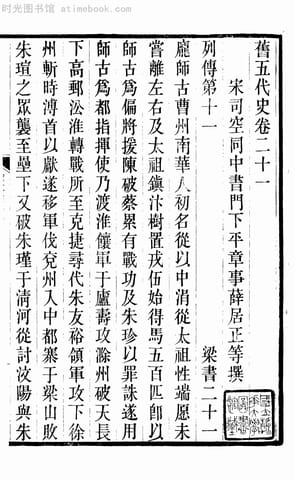 时光图书馆 - atimebook.com
舊五代史卷二十一
宋司空同中書門下平章事薛居正等撰
列傳第十一
梁書二十一
龐師古曹州南華人初名從以中涓從太祖性端愿未
嘗離左右及太祖鎮汴樹置戎伍始得馬五百匹卽以
師古爲偏將援陳破蔡累有戰功及朱珍以罪誅遂用
師古爲都指揮使乃渡淮饟軍于廬壽攻滁州破天長
下高郵沿淮轉戰所至克捷尋代朱友裕領軍攻下徐
州斬時溥首以獻遂移軍伐兗州入中都寨于梁山敗
朱瑄之眾襲至壘下又破朱瑾于清河從討汶陽與朱